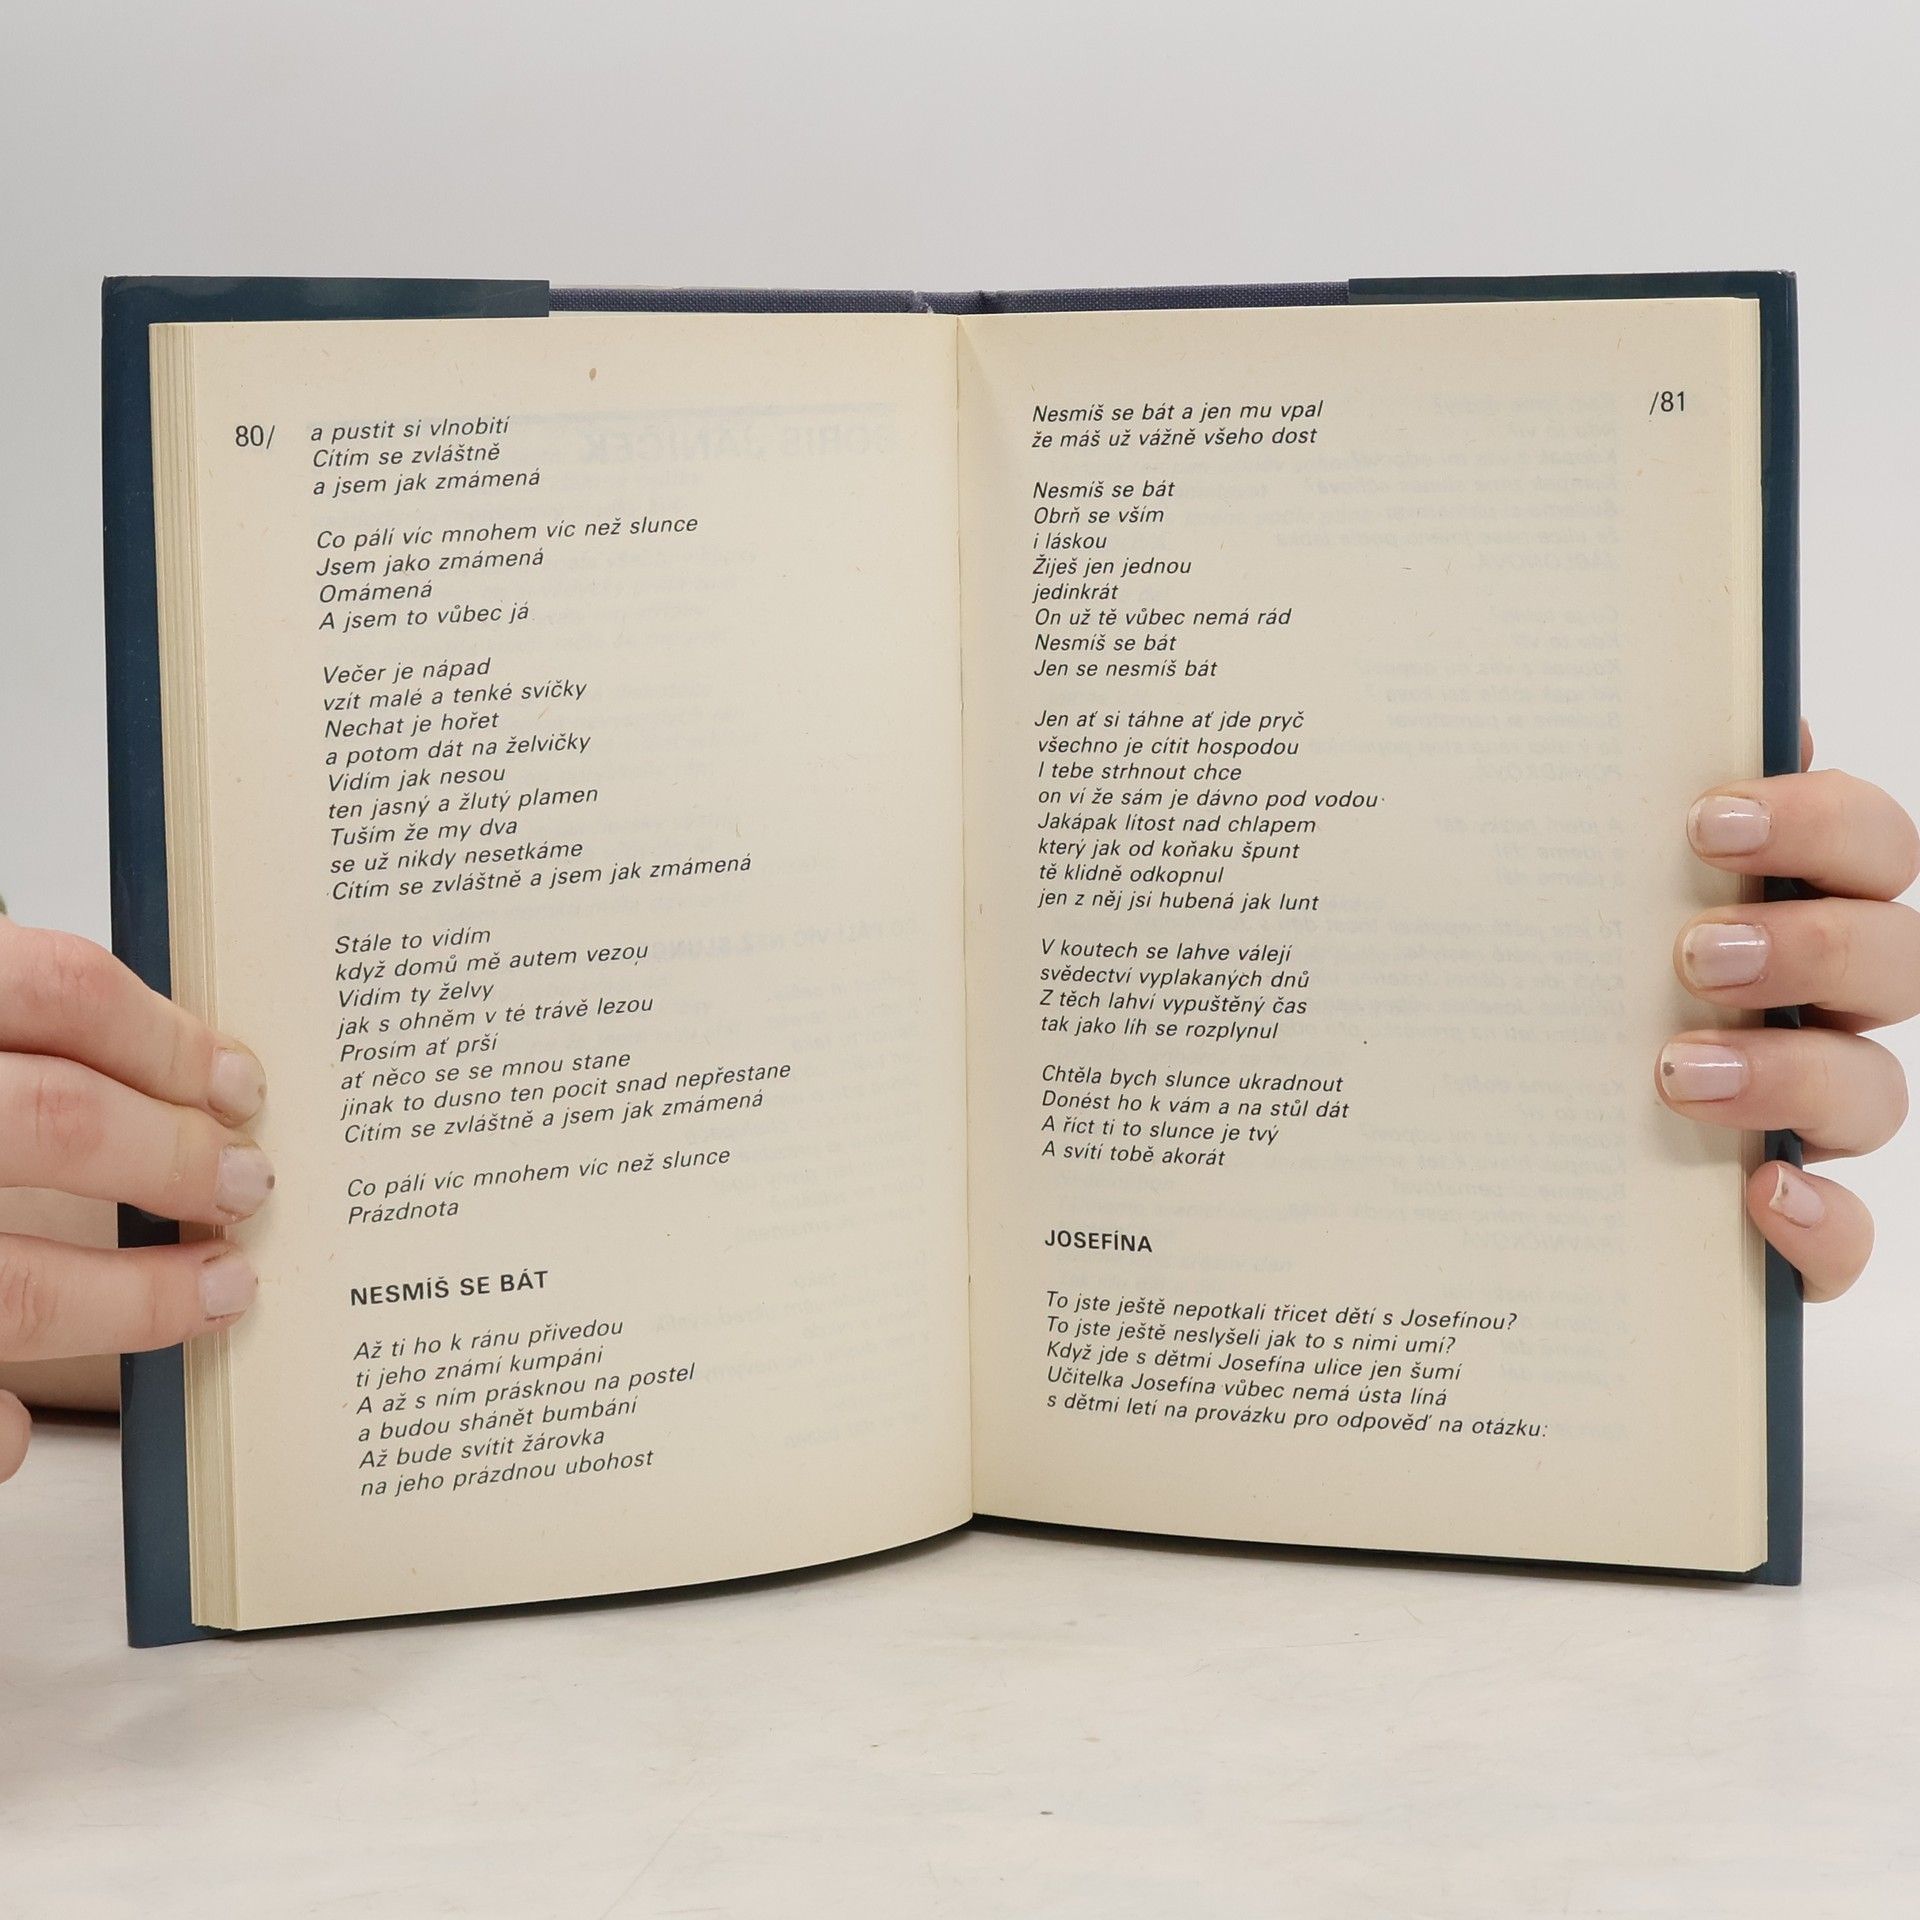 80/
a pustit si vlnobití
Cítím se zvláštně
a jsem jak zmámená

Co pálí víc mnohem víc než slunce
Jsem jako zmámená
Omámená
A jsem to vůbec já

Večer je nápad
vzít malé a tenké svíčky
Nechat je hořet
a potom dát na želvičky
Vidím jak nesou
ten jasný a žlutý plamen
Tuším že my dva
se už nikdy nesetkáme
Cítím se zvláštně a jsem jak zmámená

Stále to vidím
když domů mě autem vezou
Vidím ty želvy
jak s ohněm v té trávě lezou
Prosím ať prší
ať něco se se mnou stane
jinak to dusno ten pocit snad nepřestane
Cítím se zvláštně a jsem jak zmámená

Co pálí víc mnohem víc než slunce
Prázdnota

NESMÍŠ SE BÁT

Až ti ho k ránu přivedou
ti jeho známí kumpáni
A až s ním prásknou na postel
a budou shánět bumbání
Až bude svítit žárovka
na jeho prázdnou ubohost

/81
Nesmíš se bát a jen mu vpal
že máš už vážně všeho dost

Nesmíš se bát
Obrň se vším
i láskou
Žiješ jen jednou
jedinkrát
On už tě vůbec nemá rád
Nesmíš se bát
Jen se nesmíš bát

Jen ať si táhne ať jde pryč
všechno je cítit hospodou
I tebe strhnout chce
on ví že sám je dávno pod vodou
Jakápak lítost nad chlapem
který jak od koňaku špunt
tě klidně odkopnul
jen z něj jsi hubená jak lunt

V koutech se lahve válejí
svědectví vyplakaných dnů
Z těch lahví vypuštěný čas
tak jako líh se rozplynul

Chtěla bych slunce ukradnout
Donést ho k vám a na stůl dát
A říct ti to slunce je tvý
A svítí tobě akorát

JOSEFÍNA

To jste ještě nepotkali třicet dětí s Josefínou?
To jste ještě neslyšeli jak to s nimi umí?
Když jde s dětmi Josefína ulice jen šumí
Učitelka Josefína vůbec nemá ústa líná
s dětmi letí na provázku pro odpověď na otázku: